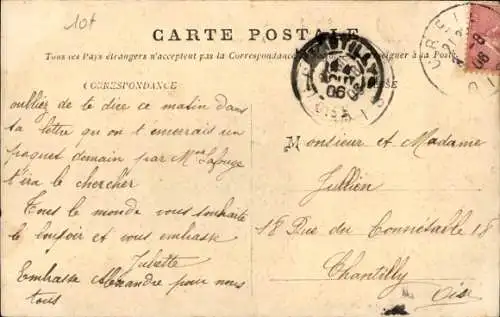 10f
CARTE POSTALE
Tous les Pays étrangers n'acceptent pas la Correspondance
CORRESPONDANCE
oubliez de te dire ce matin dans
sa lettre qu on t'emerrait un
paquet demain par Mme Lafouge
t'ira le chercher
Tous le monde vous souhaite
le bonsoir et vous embrasse
Juliette
Embrasse Alexandre pour nous
tous
CHANTILLY
06
OISE
CREIL
06
Monsieur et Madame
Jullien
18 Rue du Connétable 18
Chantilly
Oise